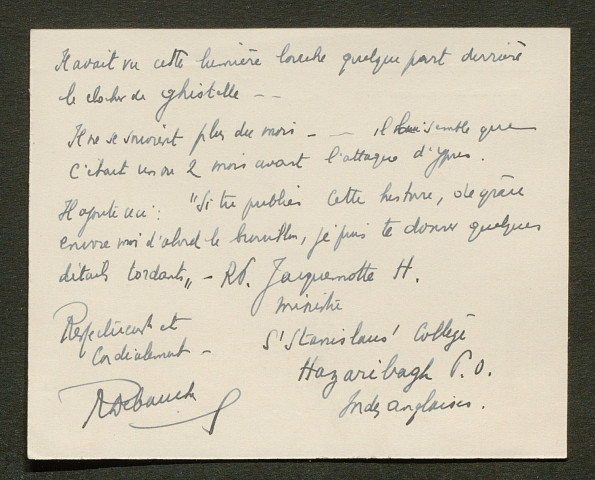 Il avait vu cette lumière louche quelque part derrière
le clocher de Ghistelle - -
Il ne se souvient plus du mois - - il lui semble que
c'était un ou 2 mois avant l'attaque d'Ypres.
Il ajoute ceci: "Si tu publies cette histoire, de grâce
envoie moi d'abord le brouillon, je puis te donner quelques
détails tordants" - RP. Jacquemotte H.
ministre
Respectueusement et
St Stanislaus' College
Cordialement -
Hazaribagh P.O.
Indes anglaises.